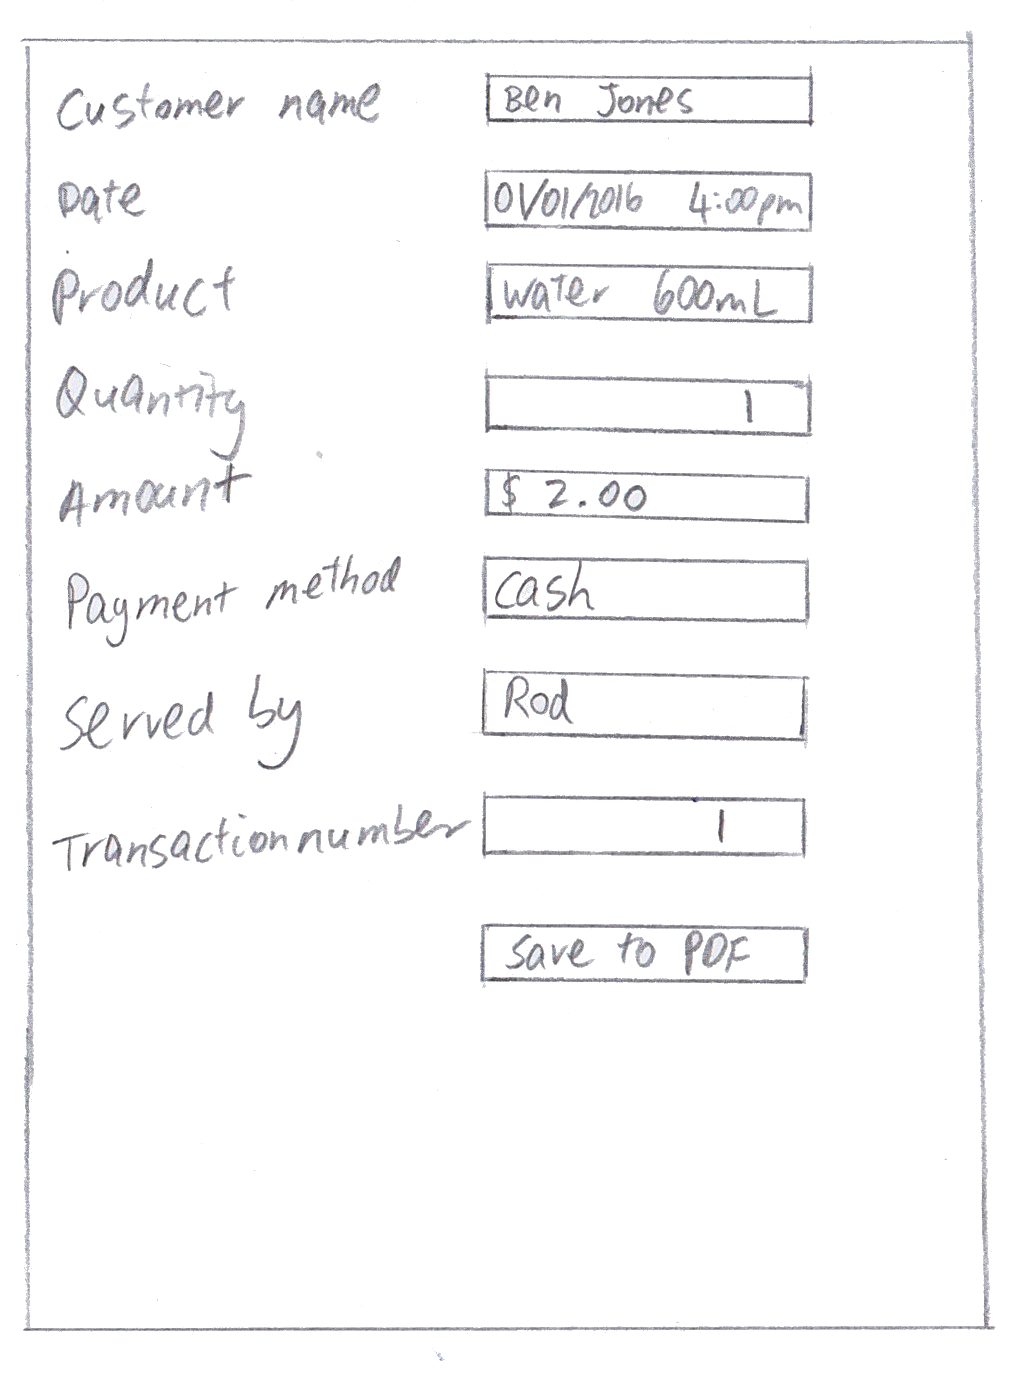 Customer name Ben Jones
Date 01/01/2016 4:00pm
Product water 600mL
Quantity 1
Amount $ 2.00
Payment method cash
Served by Rod
Transaction number 1
Save to PDF